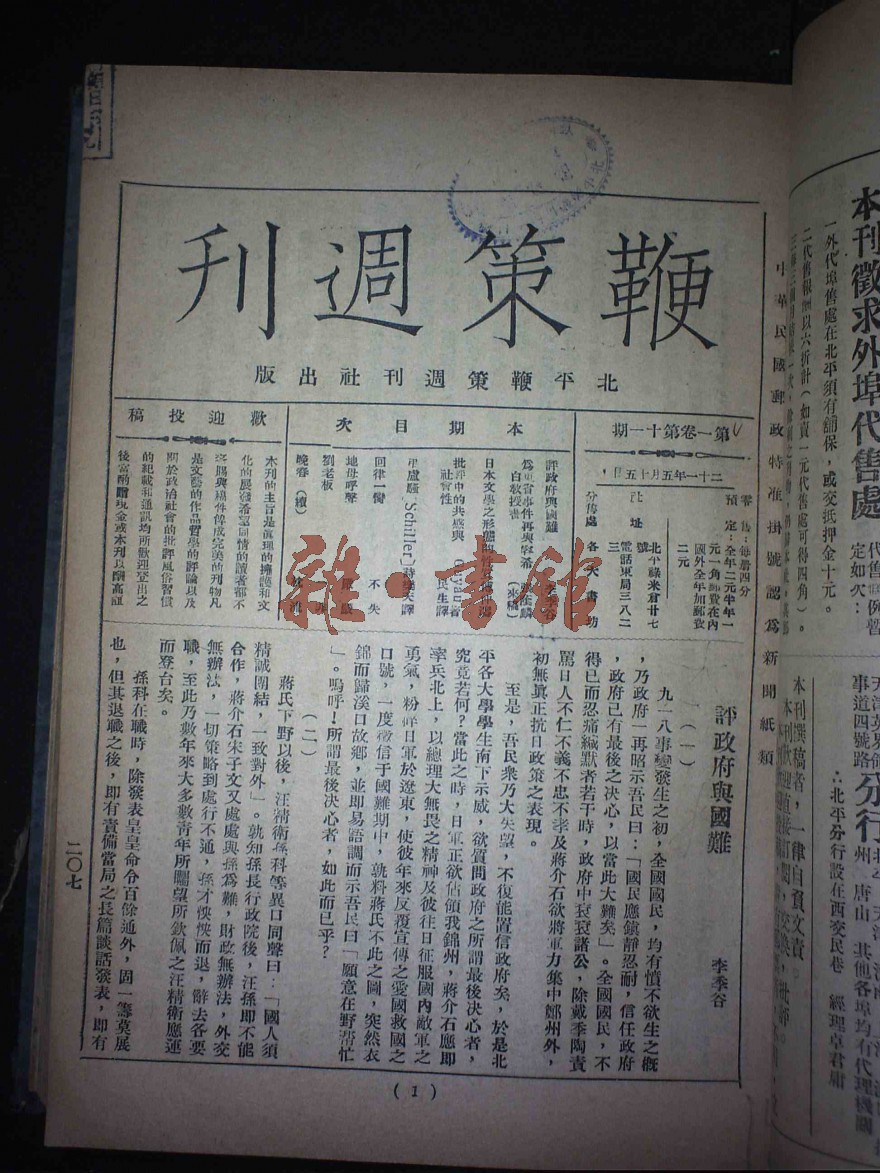 鞭策週刊
北平鞭策週刊社出版
第一卷第十一期
二十一年五月十五日
零售：每册四分
預定：全年二元半年一
元一角郵費在內
國外全年加郵費
二元
社址
北平祿米倉廿七
號
電話東局三八二
三
分售處
各大書坊
本期目次
評政府與國難
李季谷
日本文學之形態
批評中的共感與
社會性
民生譯
(Schiller)
回律一傷
不失
地母呼聲
劉老板
晚春（續）
歡迎投稿
本刊的主旨是真理的擁護和文
化的展發希望同情的讀者都不
是文藝的作品哲學的評論以及
關於政治社會的批評風俗習慣
的紀載和通訊均所歡迎登出之
後當酌贈現金或本刊以酬高誼
雜·書館
評政府與國難
李季谷
（一）
九一八事變發生之初，全國國民，均有憤不欲生之概
，乃政府一再昭示吾民曰：「國民應鎮靜忍耐，信任政府
，政府已有最後之決心，以當此大難矣」。全國國民，不
得已而忍痛緘默者若干時，政府中袞袞諸公，除戴季陶責
罵日人不仁不義不忠不孝及蔣介石欲將軍力集中鄭州外，
初無眞正抗日政策之表現。
至是，吾民衆乃大失望，不復能置信政府矣，於是北
平各大學學生南下示威，欲質問政府之所謂最後決心者，
究竟若何？當此之時，日軍正欲佔領我錦州，蔣介石應即
率兵北上，以總理大無畏之精神及彼往日征服國內敵軍之
勇氣，粉碎日軍於遼東，使彼年來反覆宣傳之愛國救國之
口號，一度徵信于國難期中，孰料蔣氏不此之圖，突然衣
錦而歸溪口故鄉，並即易語調而示吾民曰「願意在野幫忙
」。嗚呼！所謂最後決心者，如此而已乎？
（二）
蔣氏下野以後，汪精衛孫科等異口同聲曰：「國人須
精誠團結，一致對外」。孰知孫長行政院後，汪孫即不能
合作，蔣介石宋子文又處處與孫爲難，財政無辦法，外交
無辦法，一切策略到處行不通，孫才怏怏而退，辭去各要
職，至此乃數年來大多數青年所矚望所欽佩之汪精衛應運
而登台矣。
孫科在職時，除發表皇皇命令百餘通外，固一籌莫展
也，但其退職之後，即有責備當局之長篇談話發表，即有
二〇七
(1)
中華民國郵政特准掛號認爲新聞紙類
本刊徵求外埠代售處
一外代埠售處在北平須有舖保，或交抵押金十元。
二代售報酬以六折計（如賣一元代售處可得四角）。
本刊撰稿者，一律自負文責。
定如次：
事道四號路
分行
州、唐山、其他各埠均有代理機關
∴北平分行設在西交民巷　經理卓君庸